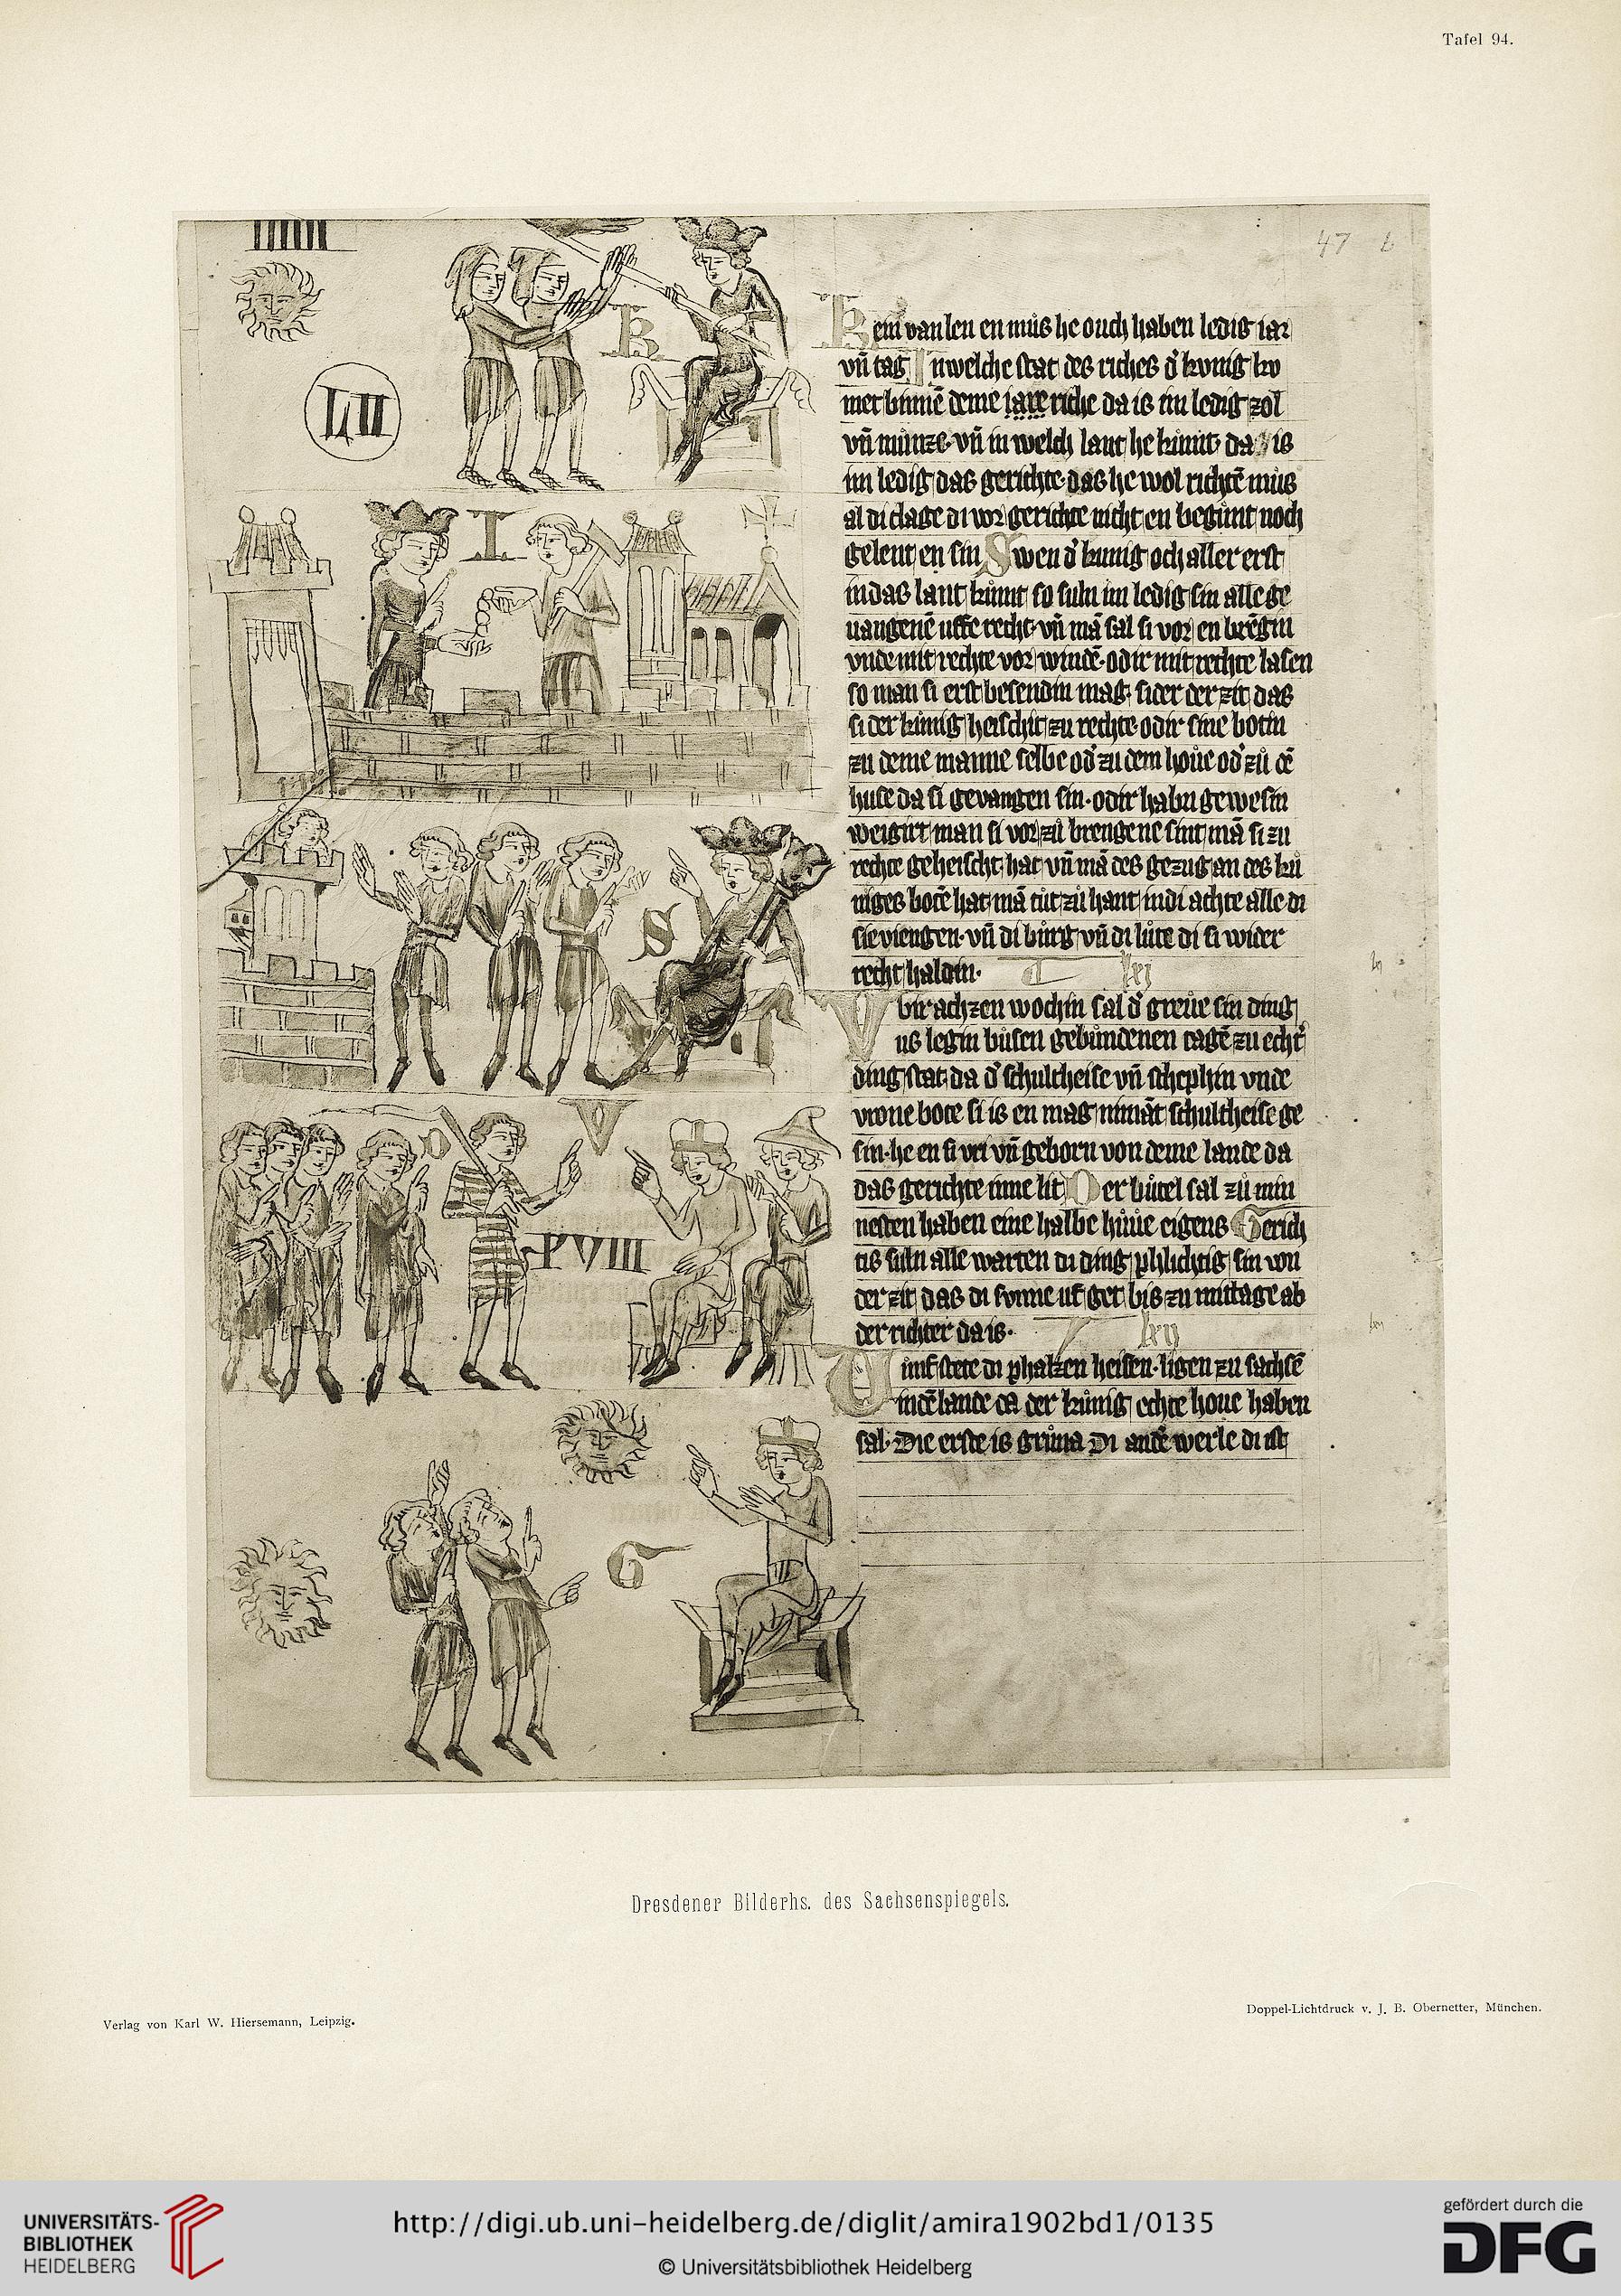 Tafel 94.
47 b
LII
K
I
S
V
PVIII
G
Kein van len en mus he ouch haben ledig iar
vñ tag In welche stat des riches d' konig ko
met binnē deme iare riche da is im ledig zol
vñ můnze vñ in welch lant he kůmt da is
im ledig das gerichte das he wol richtē mus
al di clage di vor gerichte nicht en begůnt noch
gelent en sin Swen d' kunig och aller erst
in das lant kůmt so suln im ledig sin alle ge
uangenē uffe recht vñ mā sal si vor en brēgin
vnde mit rechte vor windē odir mit rechte lasen
so man si erst besendin mag sider der zit das
si der kůnig heischit zu rechte odir sine botin
zu deme manne selbe od' zu dem houe od' zů dē
huse da si gevangen sin odir habn gewesin
weigirt man si vor zů brengene sint mā si zu
rechte geheischt hat vñ mā des gezug an des ků
niges botē hat mā tůt zů hant in di achte alle di
sie viengen vñ di bůrg vñ di lůte di si wider
recht haldin
lxj
Vbir achzen wochin sal d' greue sin ding
us legin busen gebůndenen tagē zu echt'
ding stat da d' schultheise vñ schephin vnde
vrone bote si is en mag nimāt schultheise ge
sin he en si vri vñ geborn von deme lande da
das gerichte inne lit Der bůtel sal zů min
nesten haben eine halbe hůue eigens Gerich
tis suln alle warten di ding phlichtig sin von
der zit das di sonne uf get bis zu mittage ab
der richter da is
lxij
Vimf stete di phalzen heisen ligen zu sachsē
in dē lande da der kůnig echte houe haben
sal Die erste is gruna Di andē werle di ist
Dresdener Bilderhs. des Sachsenspiegels.
Verlag von Karl W. Hiersemann, Leipzig.
Doppel-Lichtdruck v. J. B. Obernetter, München.
UNIVERSITÄTS-
BIBLIOTHEK
HEIDELBERG
http://digi.ub.uni-heidelberg.de/diglit/amira1902bd1/0135
© Universitätsbibliothek Heidelberg
gefördert durch die
DFG